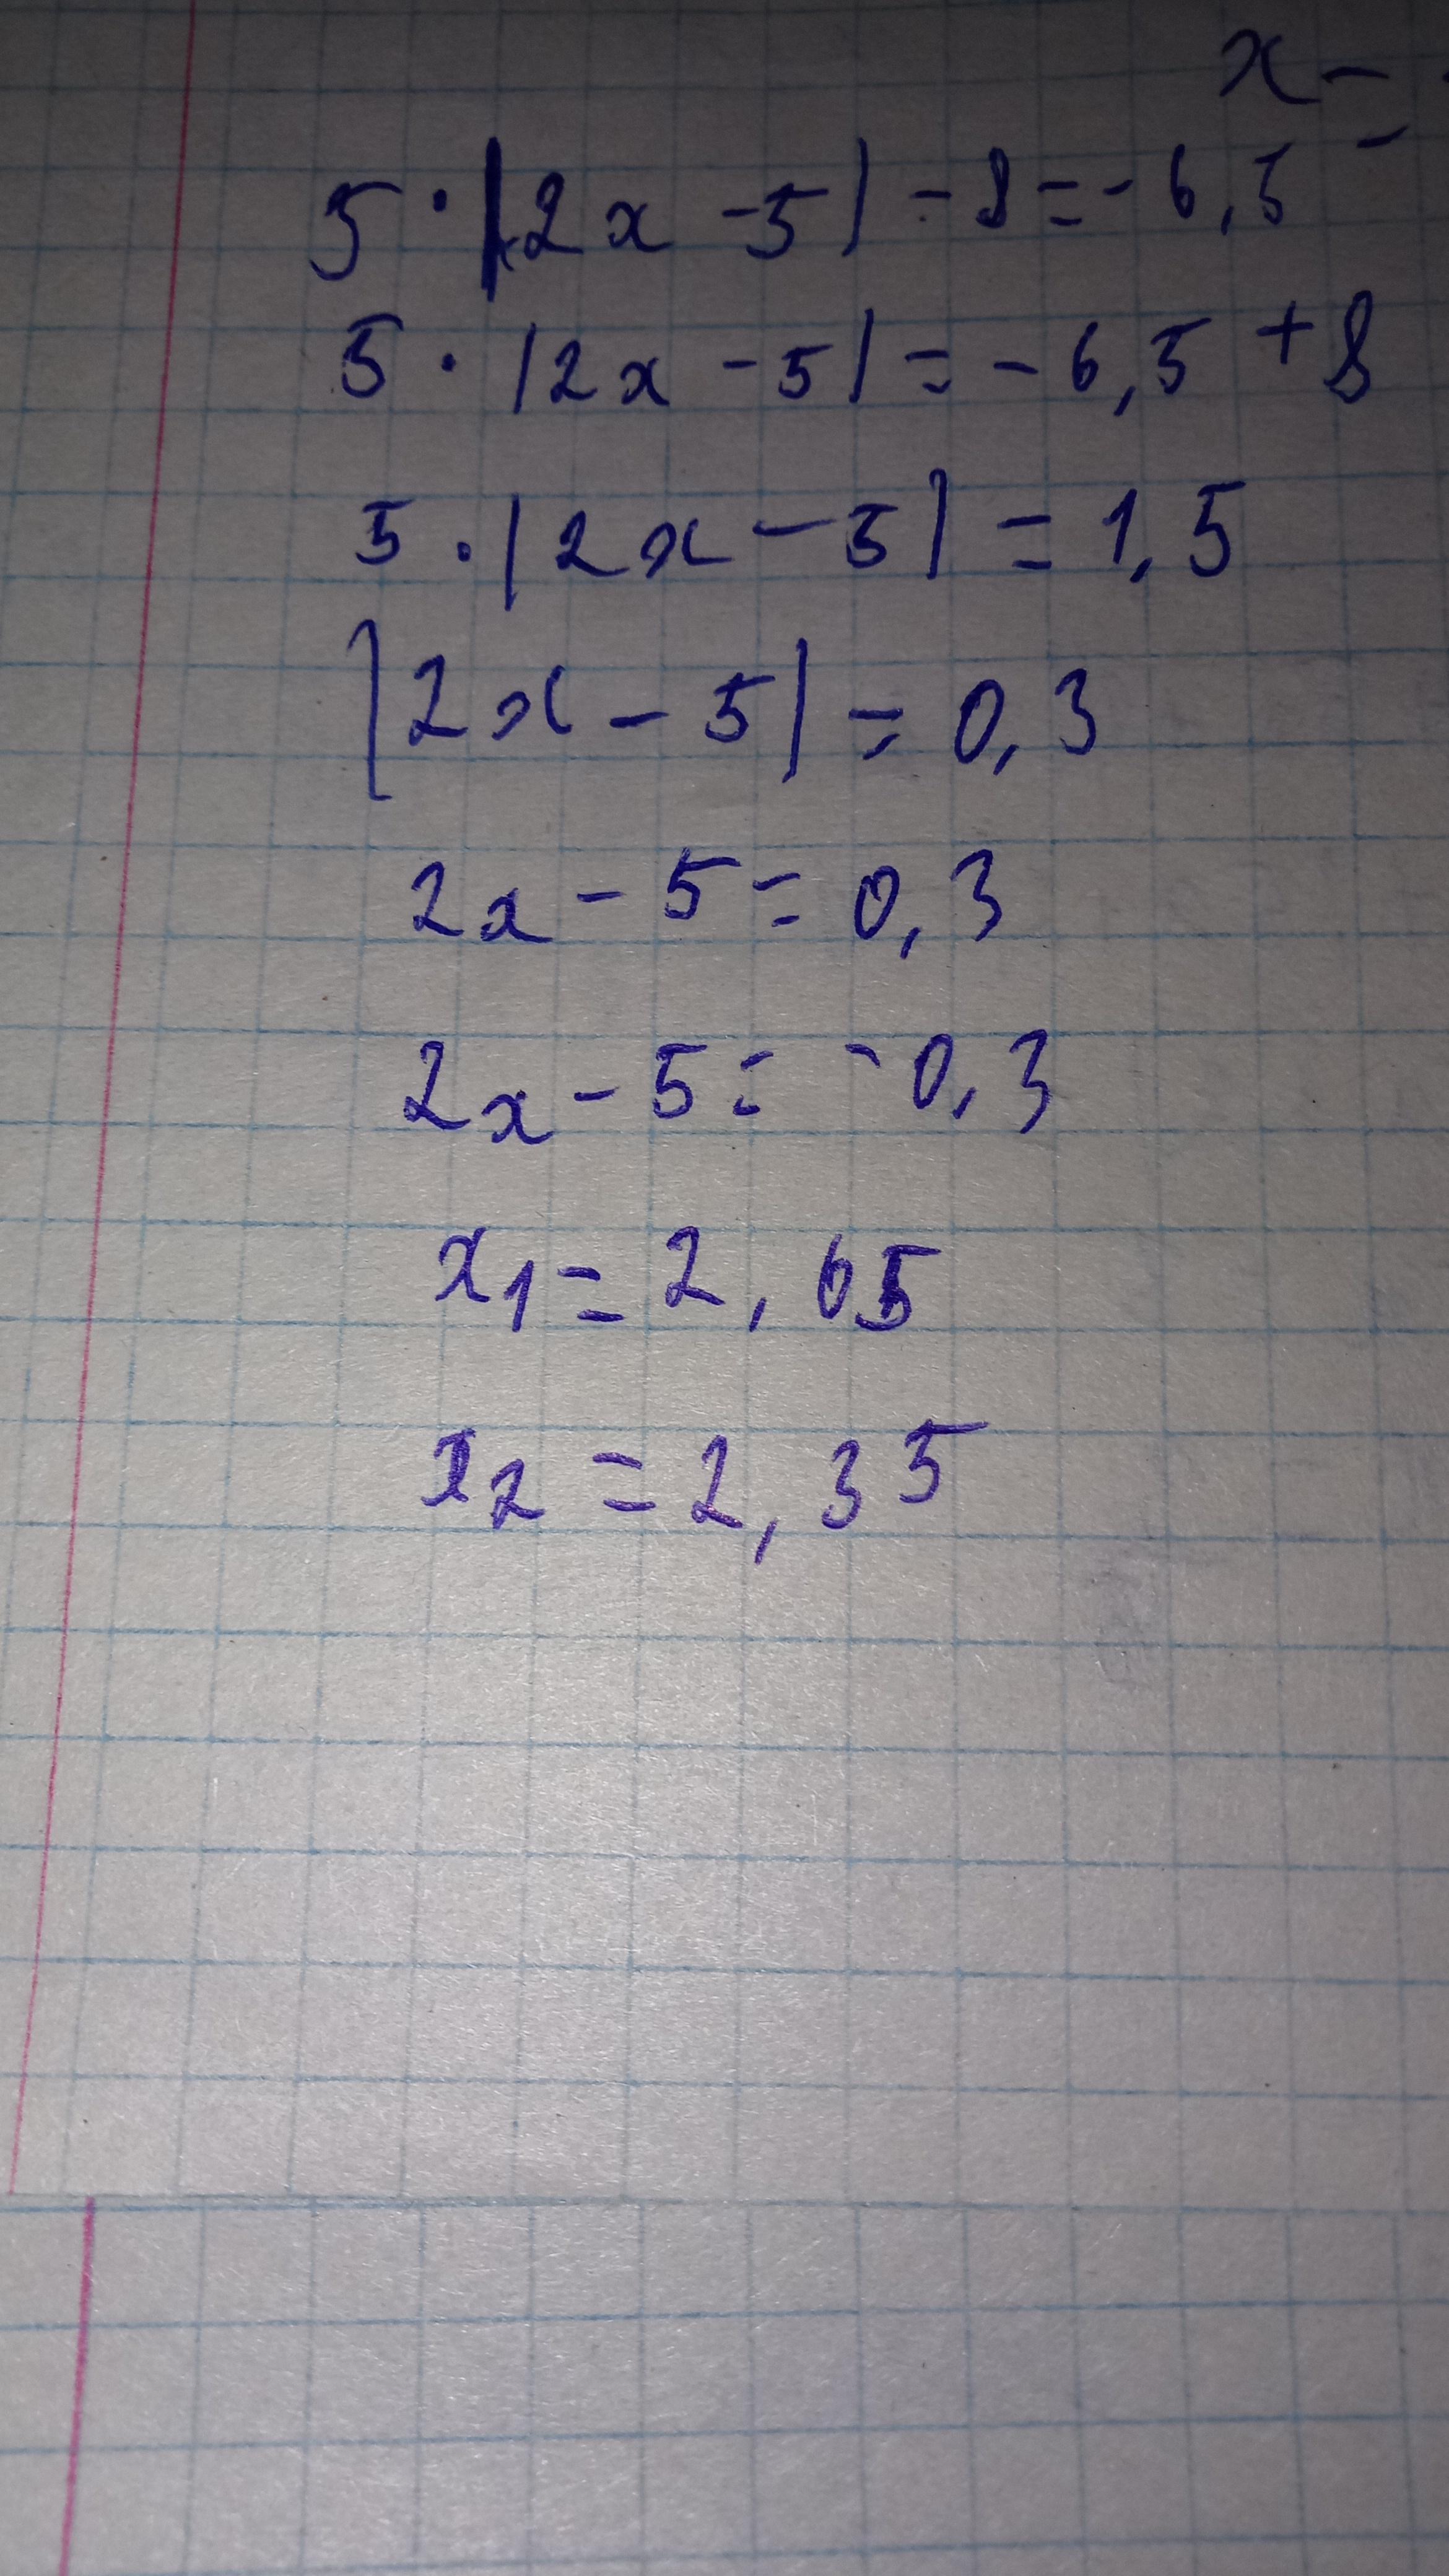 x -
5 · |2x - 5| - 8 = - 6,5
5 · |2x - 5| = - 6,5 + 8
5 · |2x - 5| = 1,5
|2x - 5| = 0,3
2x - 5 = 0,3
2x - 5 = - 0,3
x1 = 2,65
x2 = 2,35